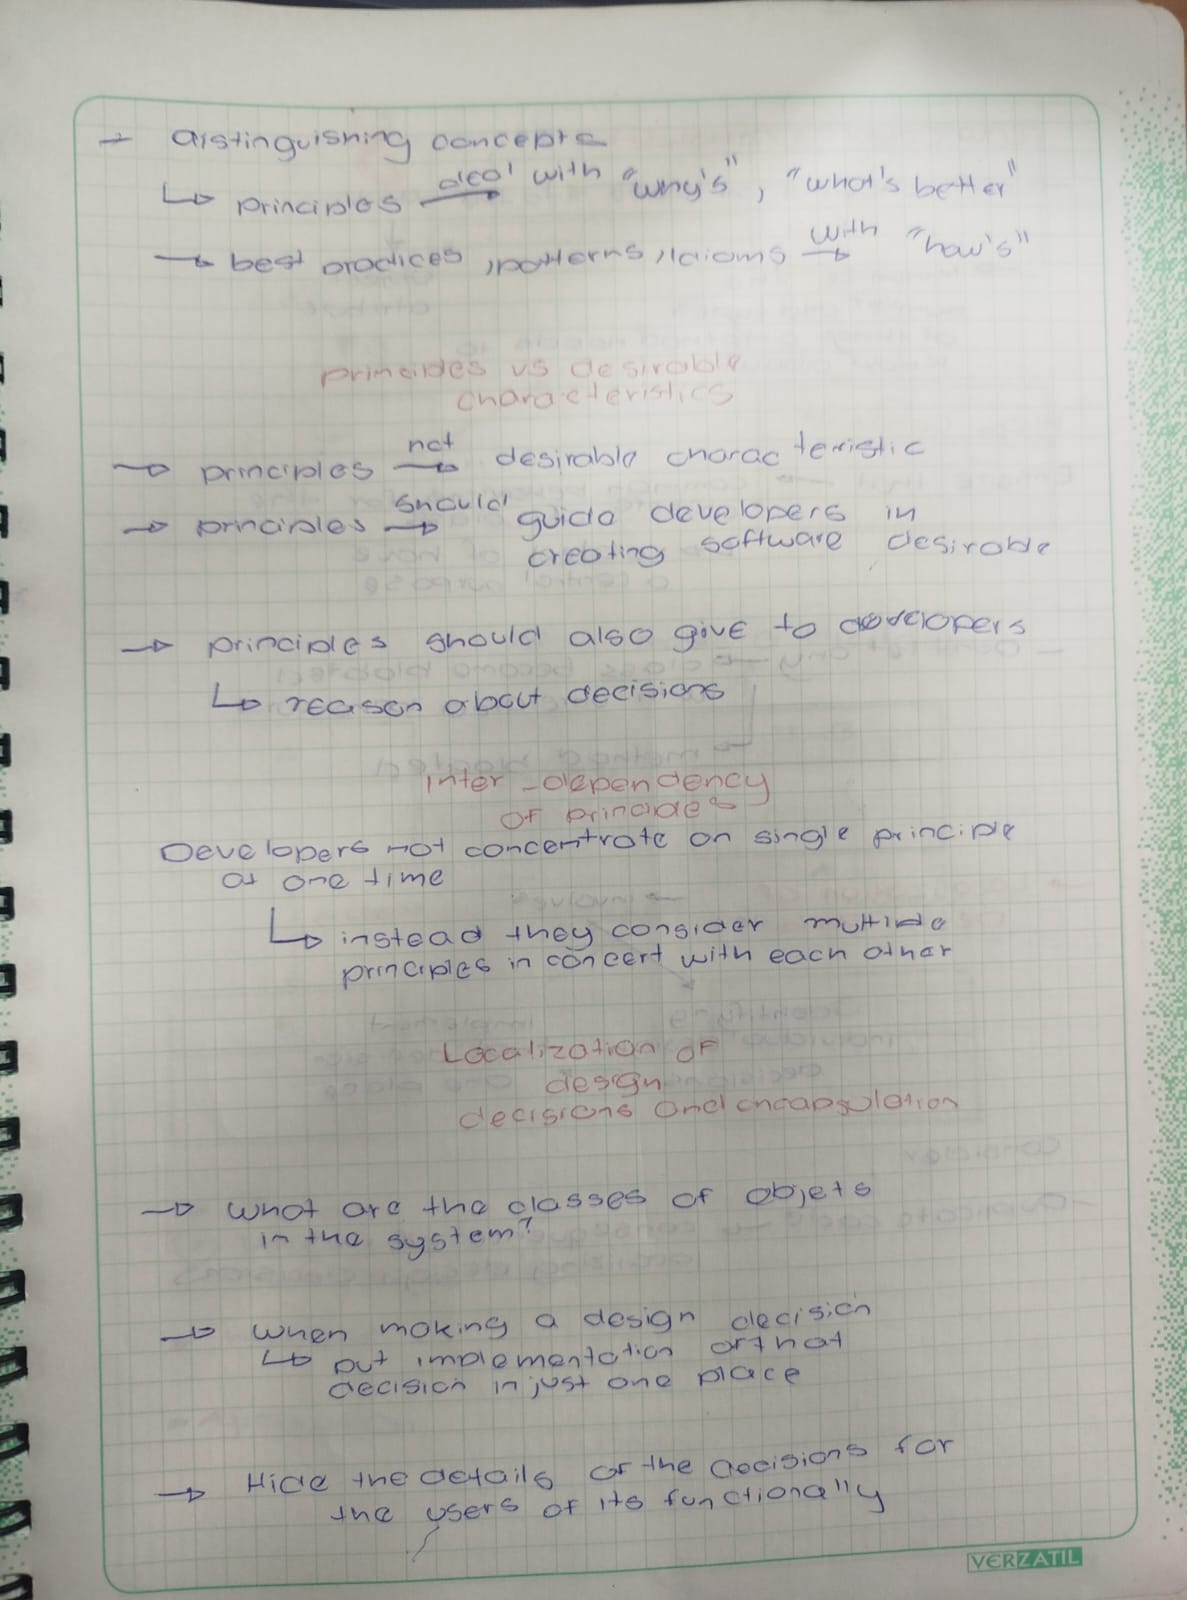 → distinguishing concepts
↳ principles → deal with "why's", "what's better"
→ best practices, patterns, idioms → with "how's"
principles vs desirable
characteristics
→ principles → not desirable characteristic
→ principles → should guide developers in
creating software desirable
→ principles should also give to developers
↳ reason about decisions
Inter-dependency
of principles
Developers not concentrate on single principle
at one time
↳ instead they consider multiple
principles in concert with each other
Localization of
design
decisions and encapsulation
→ what are the classes of objets
in the system?
→ when making a design decision
↳ put implementation of that
decision in just one place
→ Hide the details of the decisions for
the users of its functionally
VERZATIL